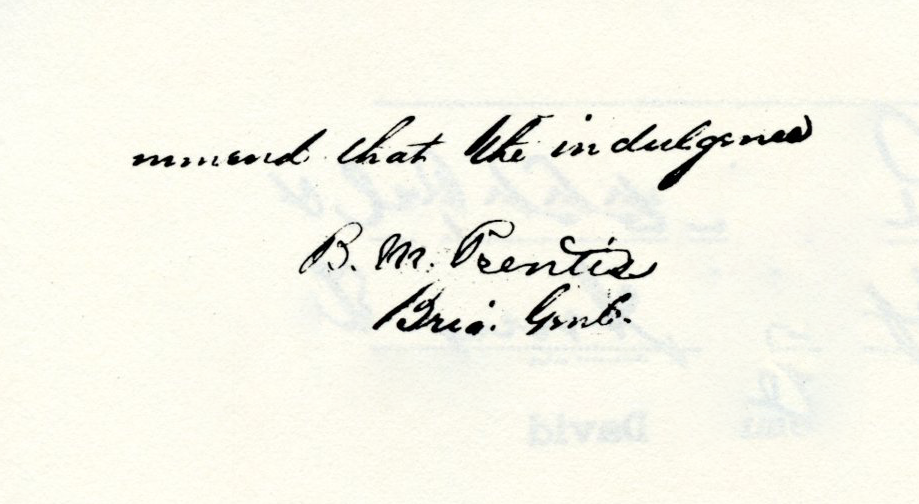 mmend that the indulgence
B. M. Prentiss
Brig. Genl.
David